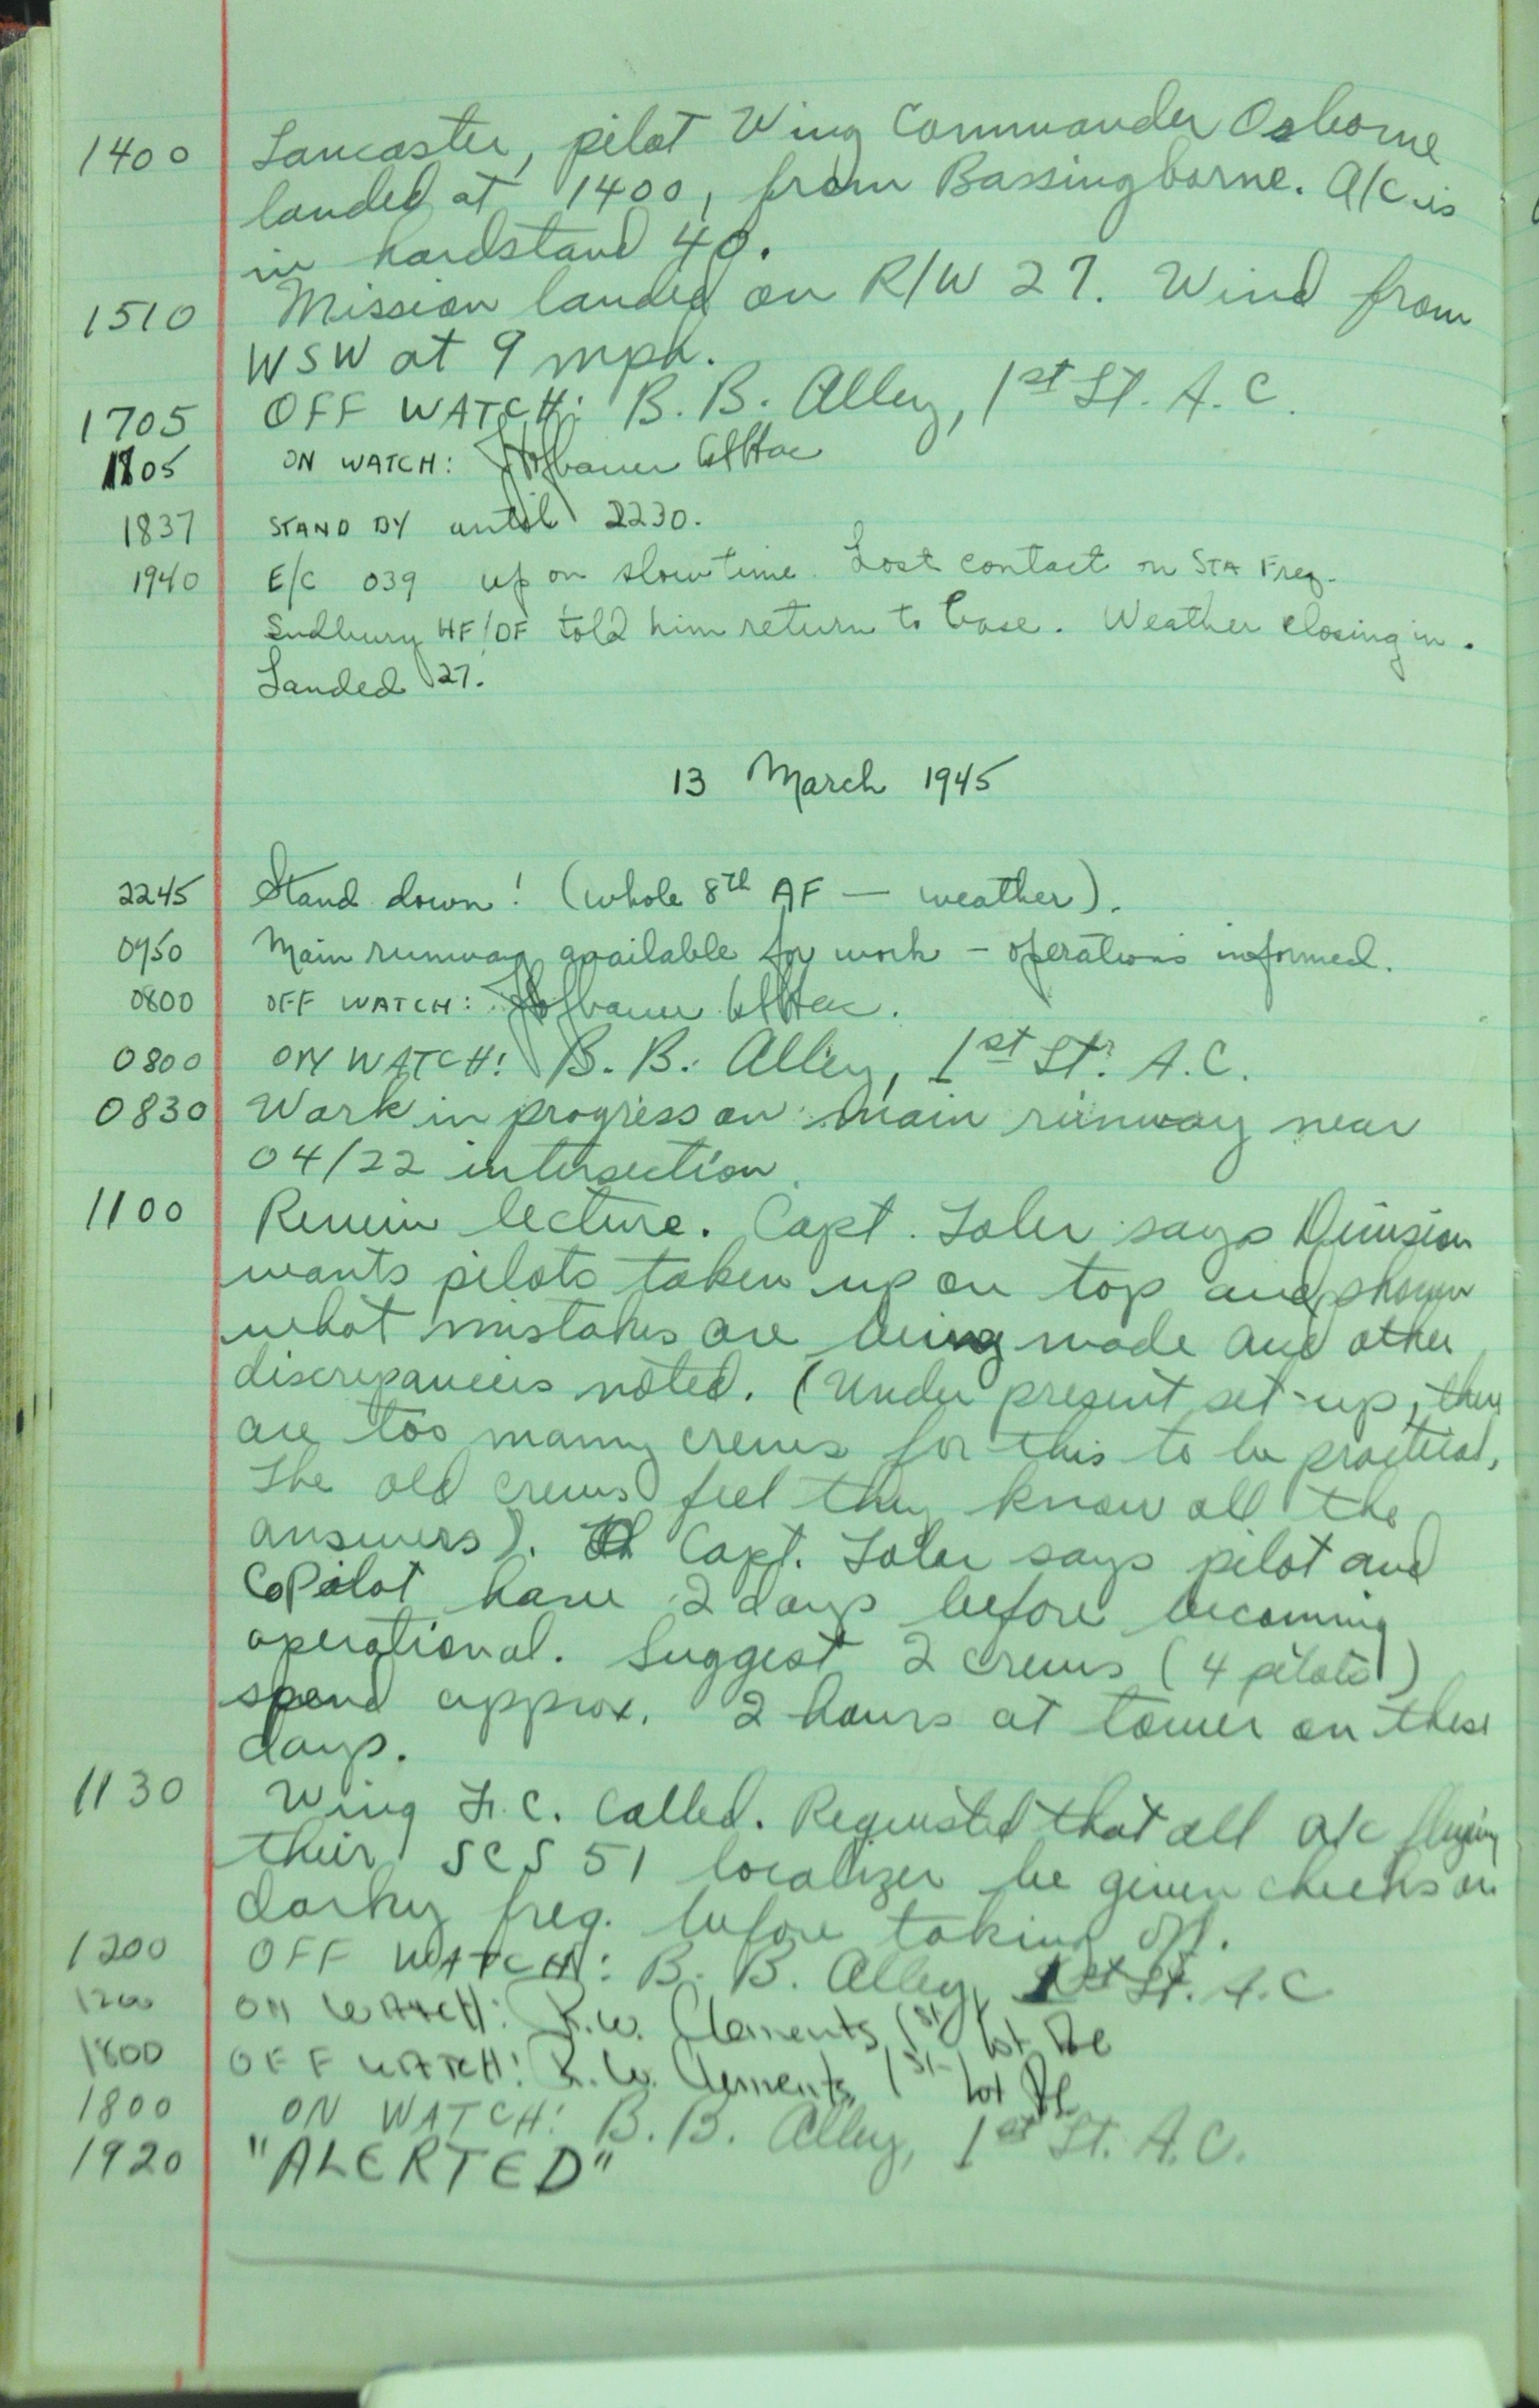 1400 Lancaster, pilot Wing Commander Osborne
landed at 1400, from Bassingborne. A/C is
in hardstand 40.
1510 Mission landed on R/W 27. Wind from
WSW at 9 mph.
1705 OFF WATCH: B. B. Alley, 1st Lt. A.C.
1705 ON WATCH:
1837 STAND BY until 2230.
1940 E/C 039 up on slow time. Lost contact on STA Freq.
Sudbury HF/DF told him return to base. Weather closing in.
Landed 27.
13 March 1945
2245 Stand down! (whole 8th AF — weather).
0750 Main runway available for work – operations informed.
0800 OFF WATCH:
0800 ON WATCH: B. B. Alley, 1st Lt. A.C.
0830 Work in progress on main runway near
04/22 intersection.
1100 lecture. Capt. says Division
wants pilots taken up on top and shown
what mistakes are being made and other
discrepancies noted. (Under present set-up, there
are too many crews for this to be practical,
The old crews feel they know all the
answers). Capt. says pilot and
CoPilot have 2 days before becoming
operational. Suggest 2 crews (4 pilots)
spend approx. 2 hours at tower on these
days.
1130 Wing F.C. called. Requested that all a/c flying
their SCS 51 localizer be given checks on
darky freq. before taking off.
1200 OFF WATCH: B. B. Alley, 1st Lt. A.C
1200 ON WATCH: R.W. Clements, 1st Lt
1800 OFF WATCH: R.W. Clements, 1st Lt
1800 ON WATCH: B. B. Alley, 1st Lt. A.C.
1920 "ALERTED"